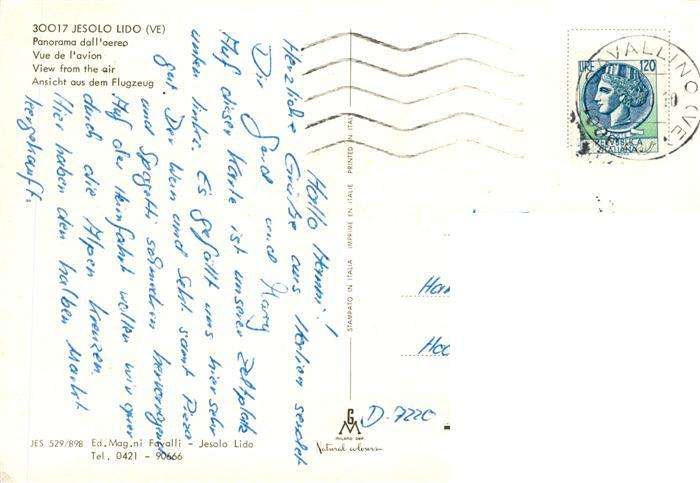 30017 JESOLO LIDO (VE)
Panorama dall'aereo
Vue de l'avion
View from the air
Ansicht aus dem Flugzeug
Hallo Henni!
Herzliche Grüße aus Italien sendet
Dir Gerd und Mary
Auf dieser Karte ist unserer Zeltplatz
unten links. Es gefällt uns hier sehr
gut. Der Wein und Sekt samt Pizza
und Spagetti schmecken hervorragend
Auf der Heimfahrt wollen wir quer
durch die Alpen kreuzen.
Hier haben den halben Markt
leergekauft.
STAMPATO IN ITALIA IMPRIME EN ITALIE PRINTED IN ITALY
VALLINO (VE)
LIRE 120
REPVBBLICA
ITALIANA
Han
Hoc
D-7220
GM
MILANO DEP.
Natural colours
JES 529/898 Ed. Mag.ni Favalli - Jesolo Lido
Tel. 0421 - 90666